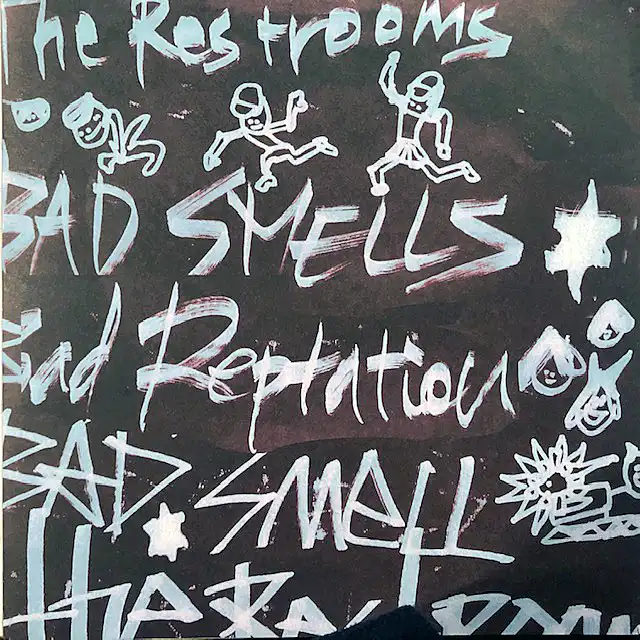 The Restrooms
BAD SMELLS
Bad Reptation
BAD SMELL
the Restroom